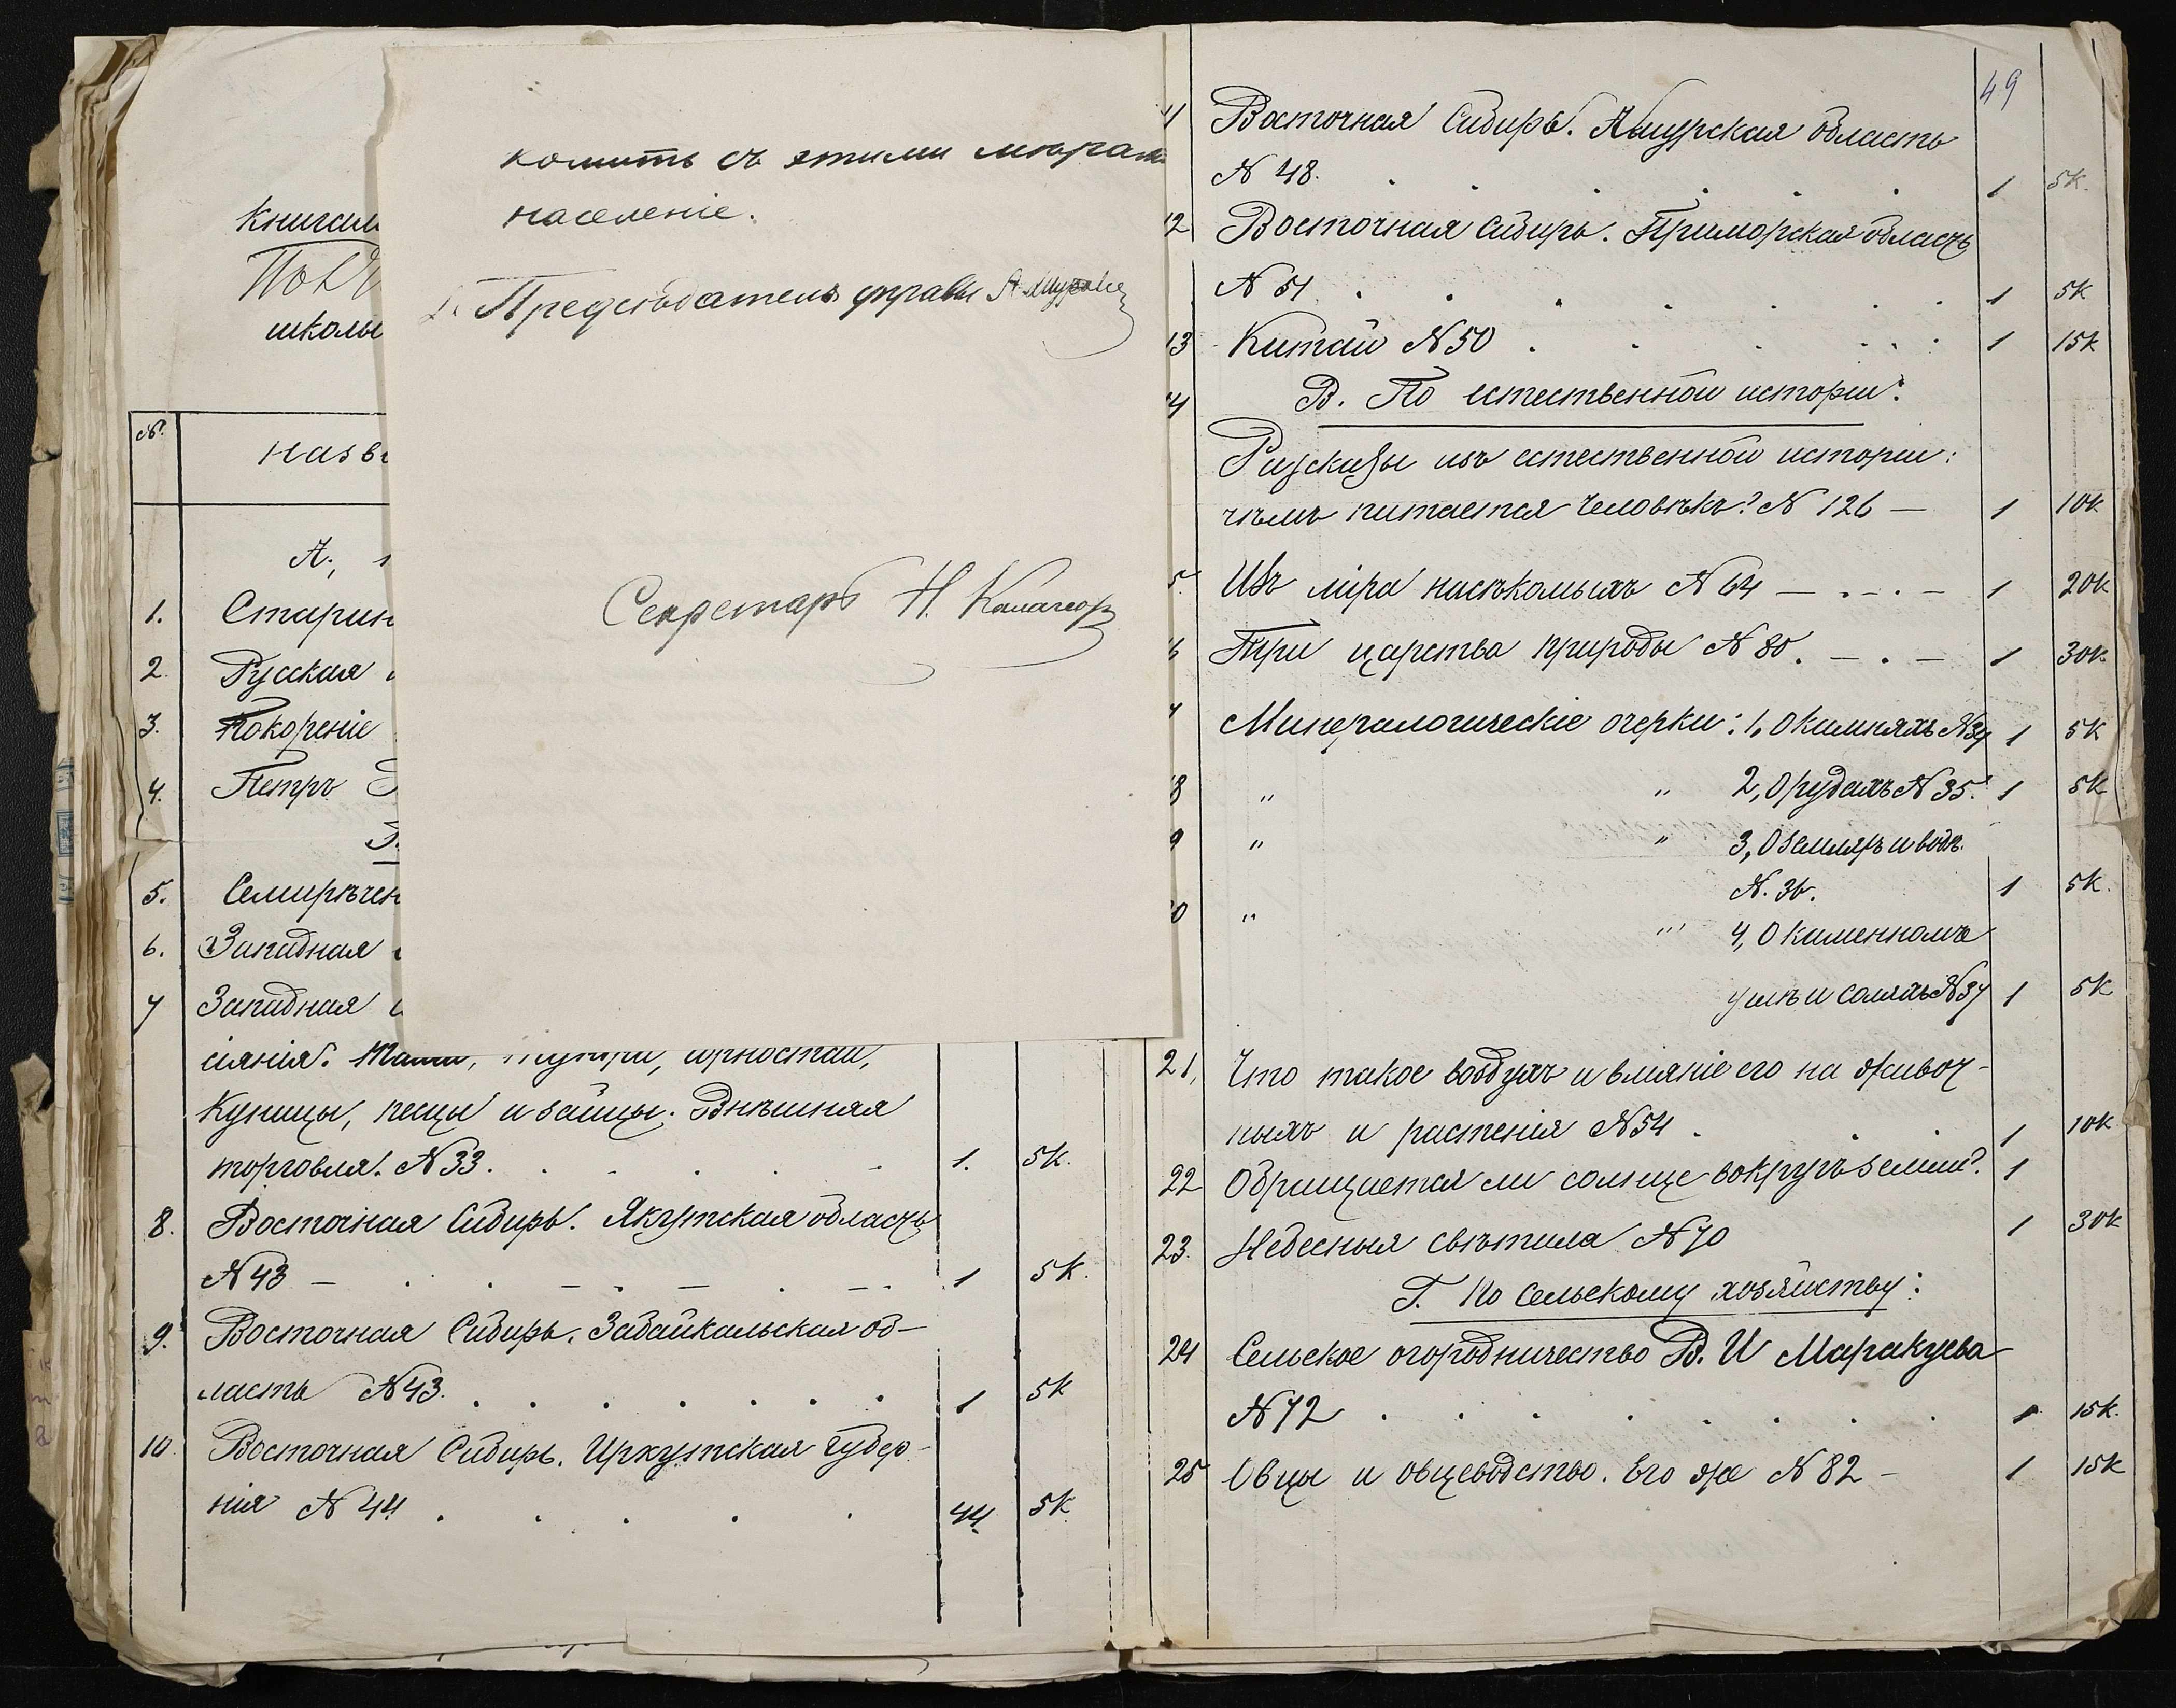 Книгам
школы
№
Назв
А.,
1. Старин
2. Русская
3. Покореніе
4. Петръ
5. Семирѣчен
6. Западная
7 Западная
сіянія.
Куницы, песцы и зайцы. Внѣшняя
торговля. N 33. 1. 5к.
8. Восточная Сибирь. Якутская область
N 43 1 5к.
9. Восточная Сибирь. Забайкальская об-
ласть N 43. 1 5к
10. Восточная Сибирь. Иркутская губер-
нія N 44. 44 5к
комить съ этими мѣрами
населеніе.
Предсѣдатель управы
Секретарь Н.
49
Восточная Сибирь. Амурская область
N 48. 1 5к.
12 Восточная Сибирь. Приморская область
N 51. 1 5к
13 Китай N 50 1 15к
В. По естественной исторіи:
Разсказы изъ естественной исторіи:
чѣмъ питается человѣкъ? N 126 — 1 10к
5. Изъ міра насѣкомыхъ N 64 1 20к
6 Три царства природы N 80. 1 30к
Минералогическіе очерки: 1, О камняхъ N 34 1 5к
8 " " 2, О рудахъ N 35. 1 5к
9 " " 3, О земляхъ и водѣ.
N. 36. 1 5к.
0 " " 4, О каменномъ
углѣ и соляхъ N 37 1 5к
21, Что такое воздухъ и вліяніе его на живот-
ныхъ и растенія N 54 1 10к
22 Обращается ли солнце вокругъ земли? 1
23. Небесныя свѣтила N 70 1 30к
Г. По сельскому хозяйству:
24 Сельское огородничество В. И Маракуева
N 72 1 15к.
25 Овцы и овцеводство. Его же N 82 - 1 15к